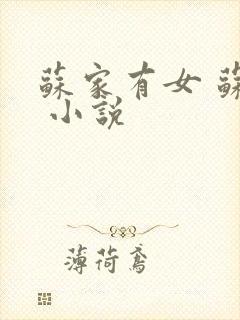 蘇家有女 蘇
小說
薄荷鳶